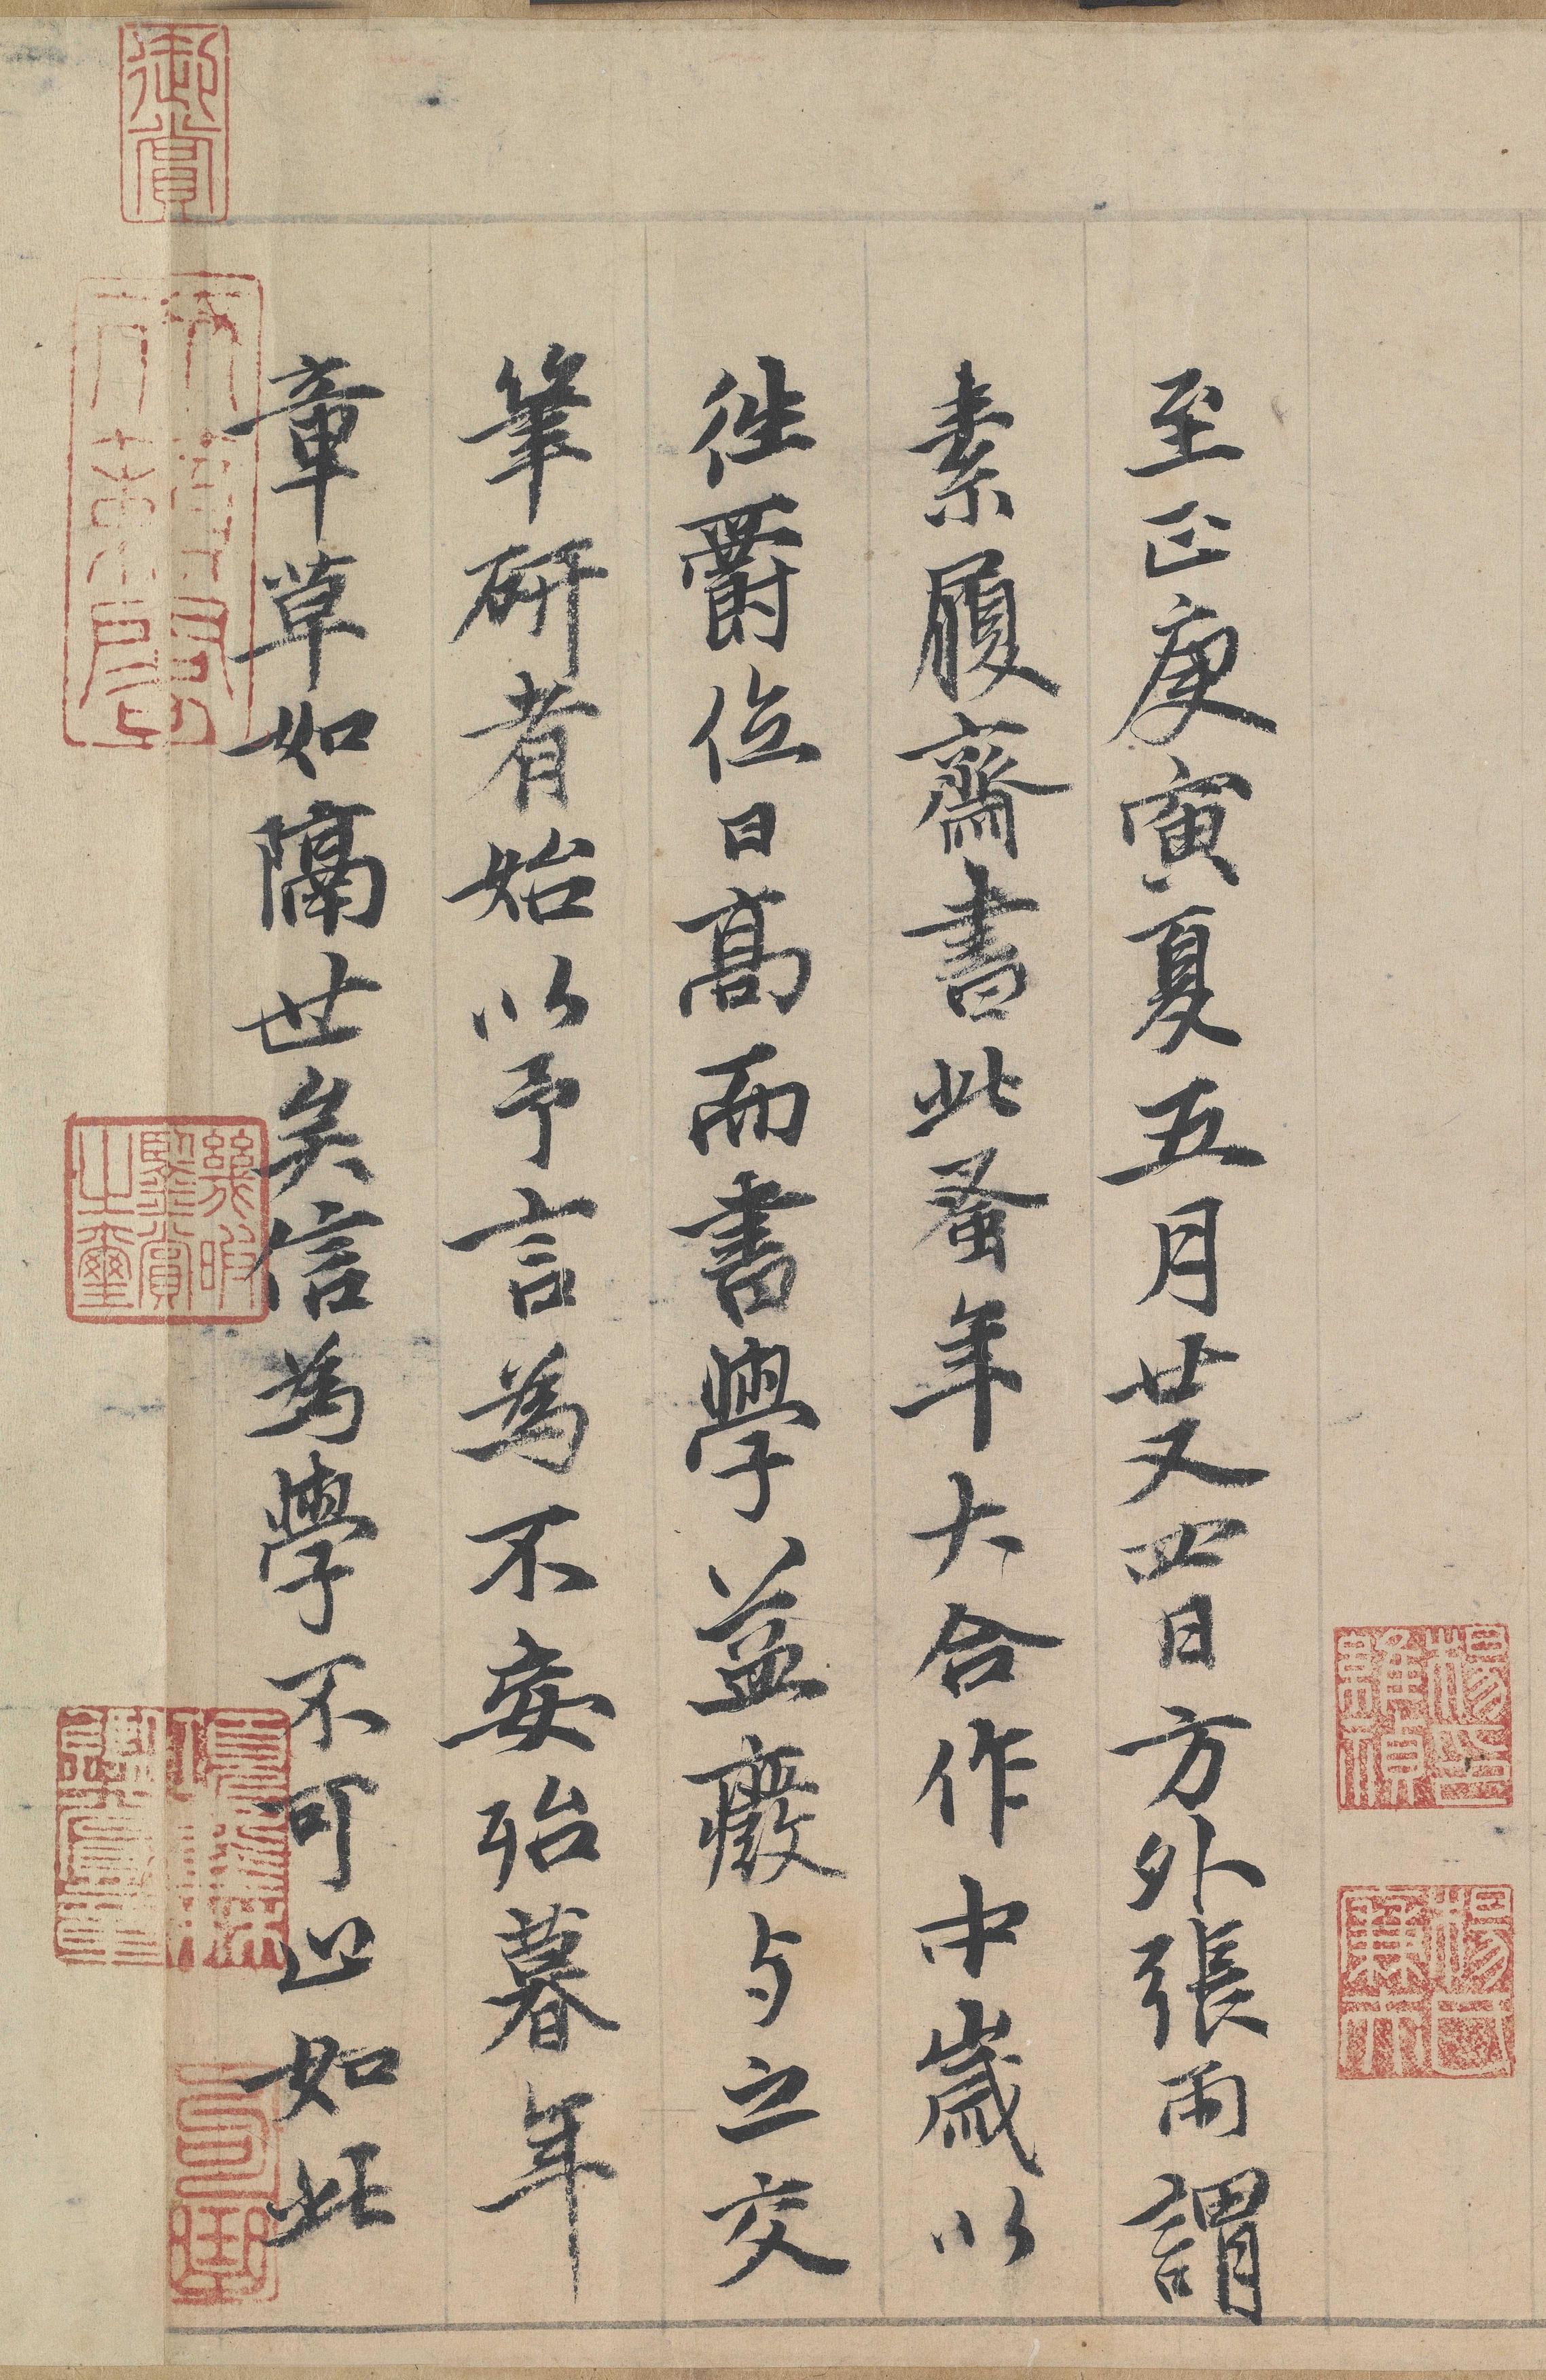 至正庚寅夏五月廿又四日方外張雨謂
素履齋書此蚤年大合作中歲以
徃爵位日高而書學益廢与之交
筆研者始以予言爲不妄殆暮年
章草如隔世矣信爲學不可止如此
御賞
幾暇鑒賞之璽